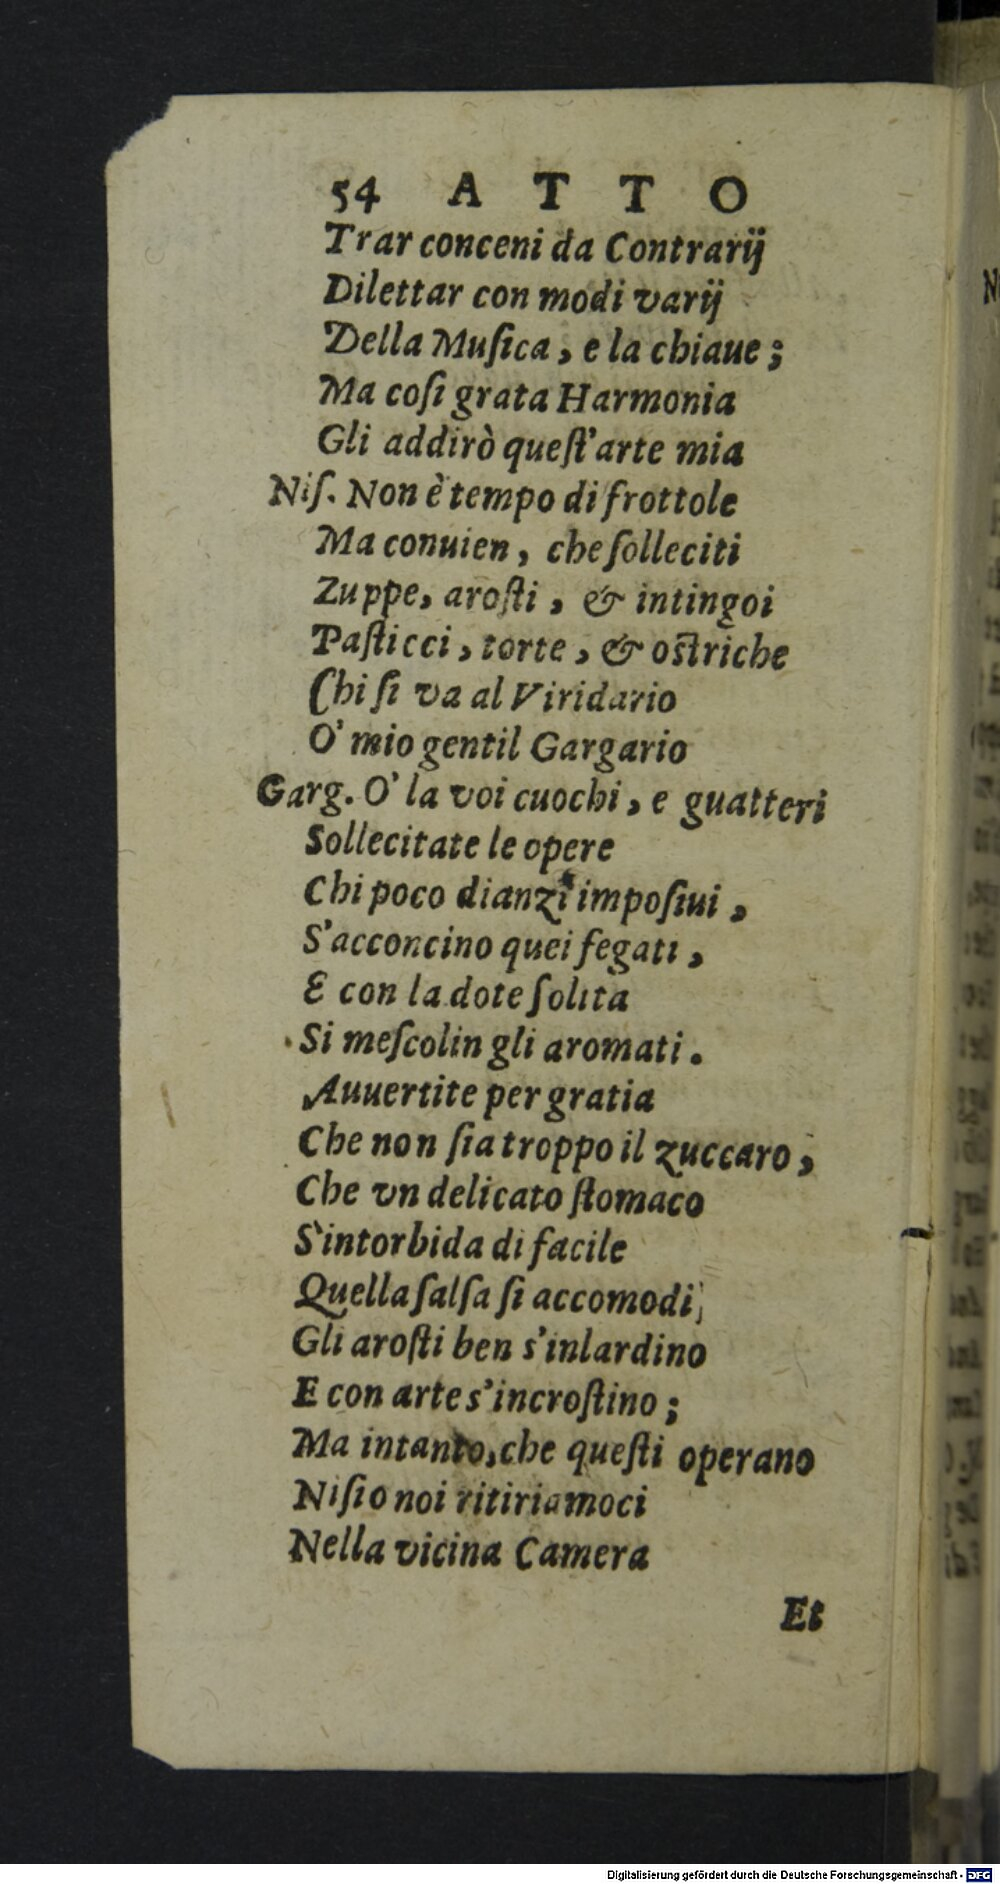 54 A T T O
Trar conceni da Contrarij
Dilettar con modi varij
Della Muſica, e la chiaue;
Ma coſi grata Harmonia
Gli addirò queſt'arte mia
Niſ. Non è tempo di frottole
Ma conuien, che ſolleciti
Zuppe, aroſti, & intingoi
Paſticci, torte, & oſtriche
Chi ſi va al Viridario
O' mio gentil Gargario
Garg. O' la voi cuochi, e guatteri
Sollecitate le opere
Chi poco dianzi impoſiui,
S'acconcino quei fegati,
E con la dote ſolita
Si meſcolin gli aromati.
Auuertite per gratia
Che non ſia troppo il zuccaro,
Che vn delicato ſtomaco
S'intorbida di facile
Quella ſalſa ſi accomodi,
Gli aroſti ben s'inlardino
E con arte s'incroſtino;
Ma intanto, che queſti operano
Niſio noi ritiriamoci
Nella vicina Camera
Et
Digitalisierung gefördert durch die Deutsche Forschungsgemeinschaft - DFG